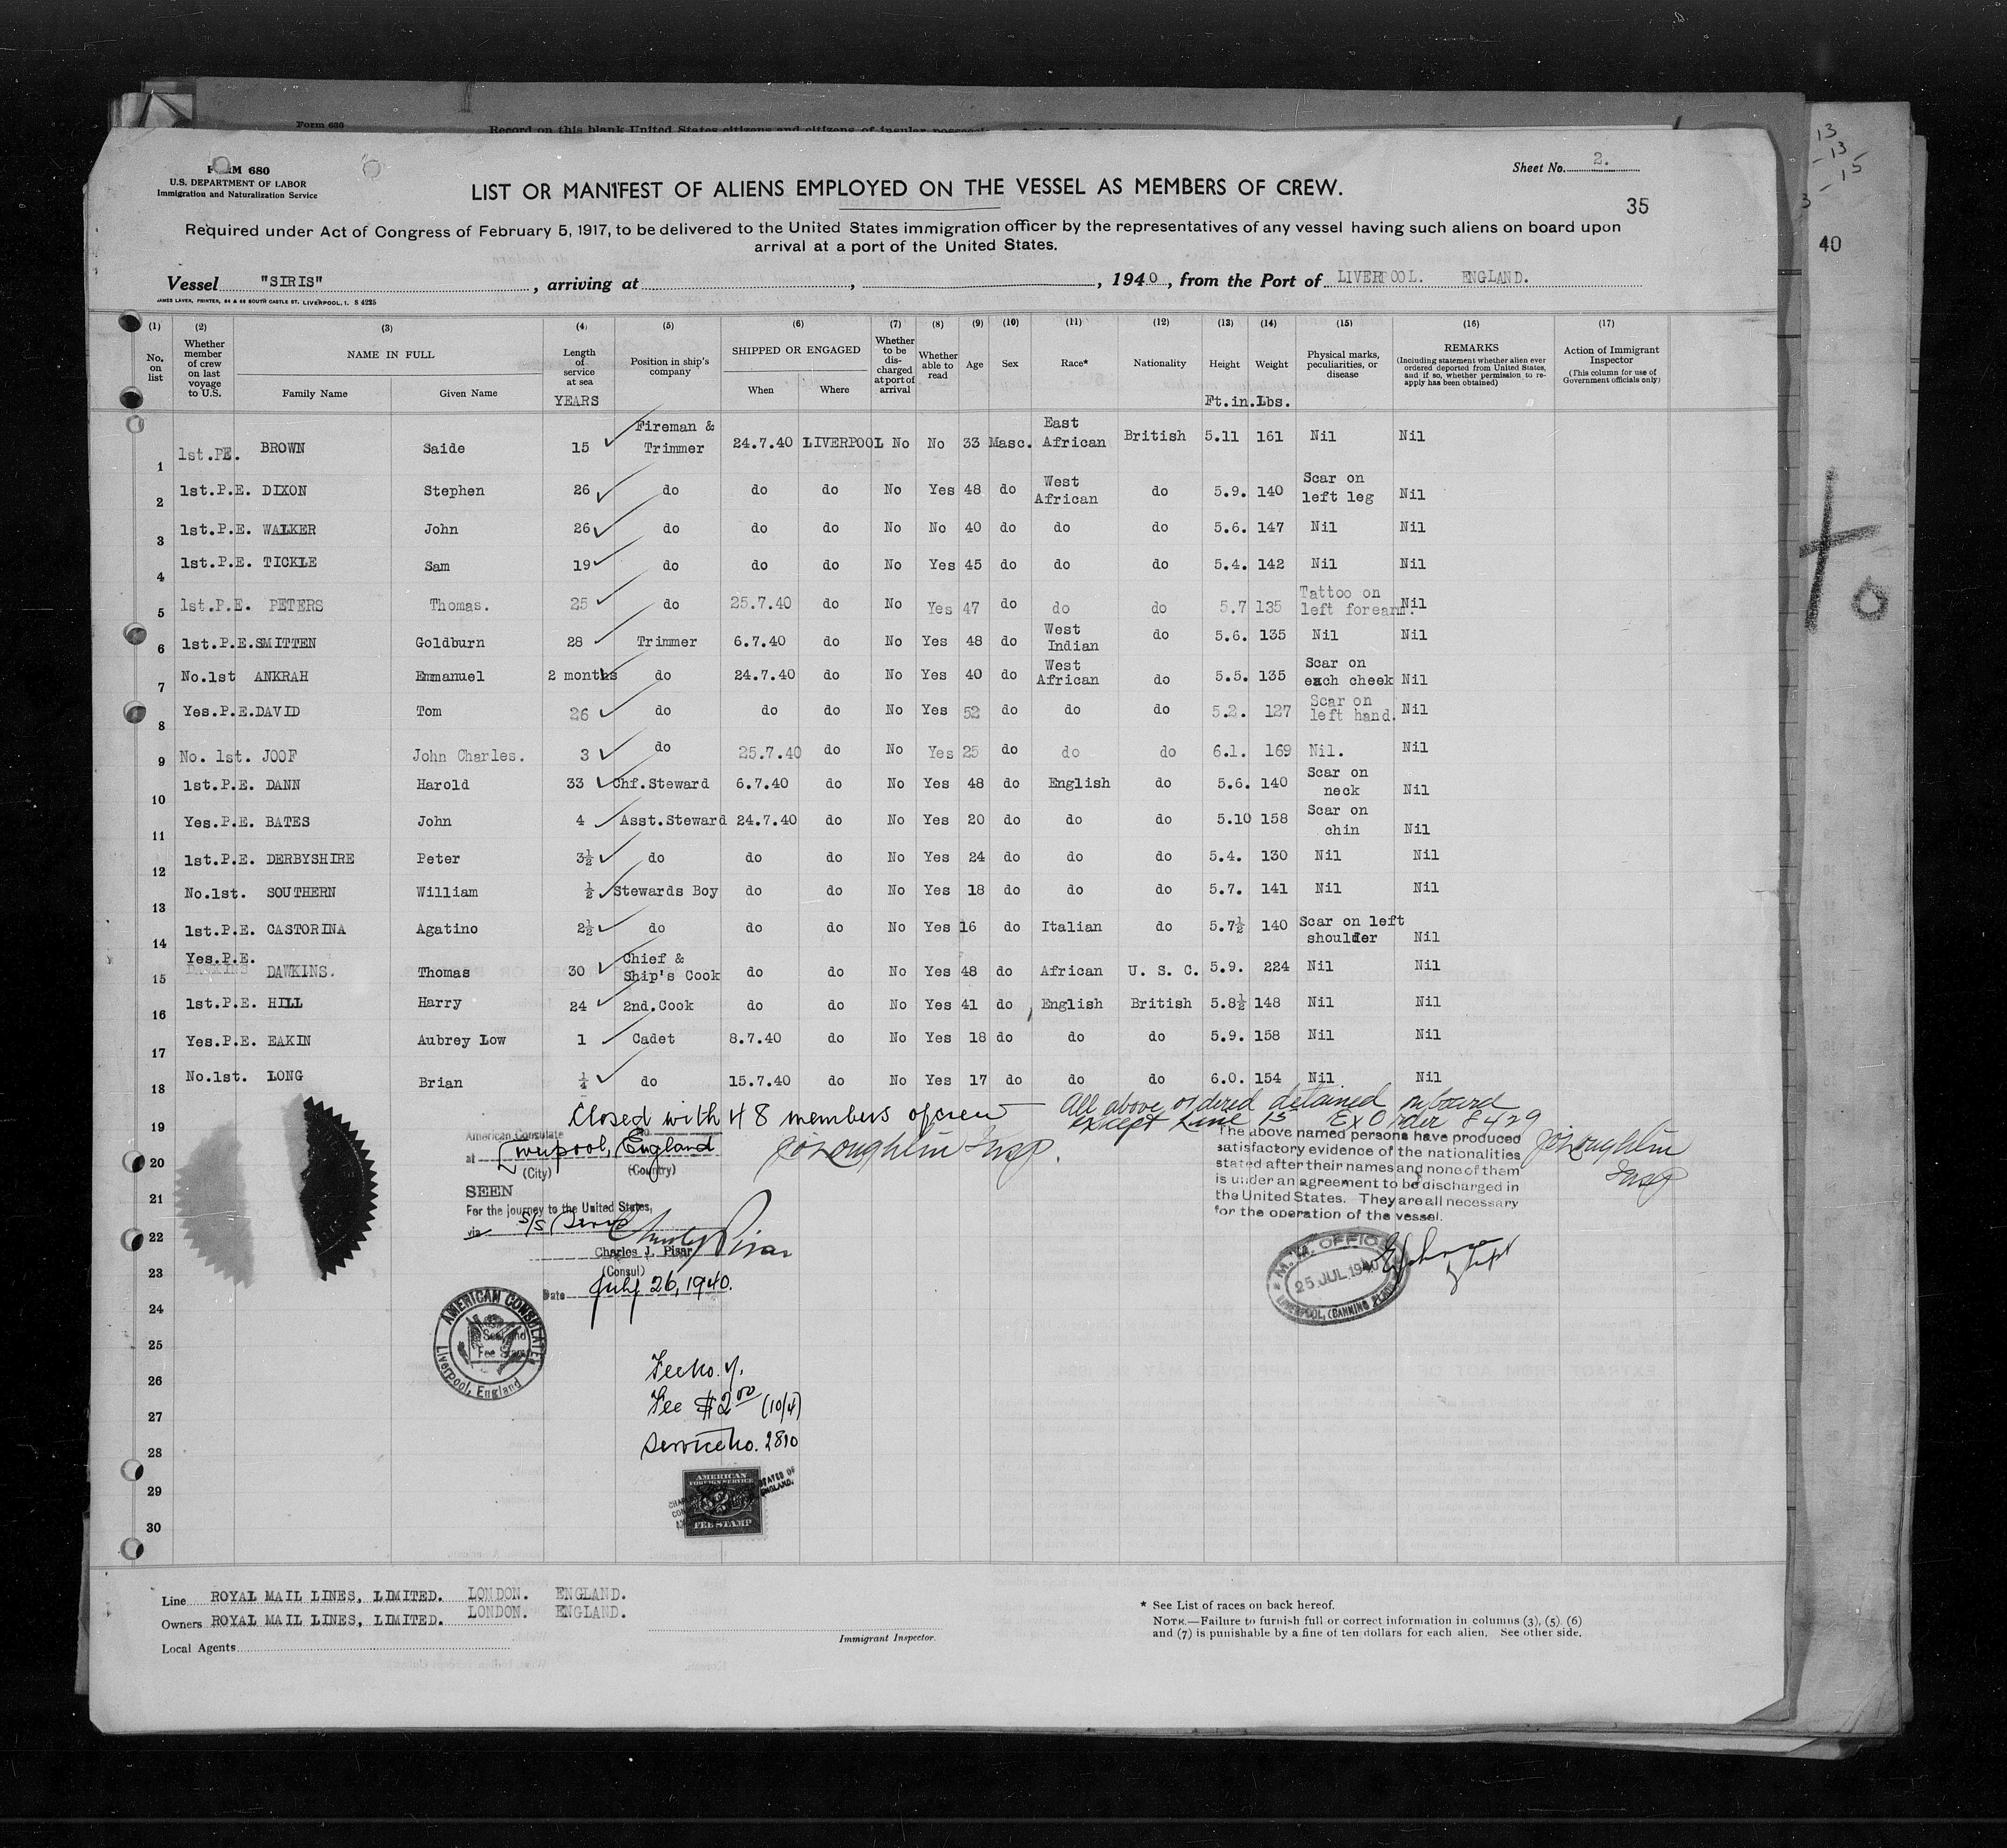 Form 630
Record on this blank United States citizens and citizens of insular
FORM 680
U.S. DEPARTMENT OF LABOR
Immigration and Naturalization Service
Sheet No. 2.
LIST OR MANIFEST OF ALIENS EMPLOYED ON THE VESSEL AS MEMBERS OF CREW.
35
Required under Act of Congress of February 5, 1917, to be delivered to the United States immigration officer by the representatives of any vessel having such aliens on board upon
arrival at a port of the United States.
Vessel "SIRIS", arriving at , , 1940, from the Port of LIVERPOOL. ENGLAND.
JAMES LAVER, PRINTER, 64 & 66 SOUTH CASTLE ST. LIVERPOOL, 1. S 4225
(1) (2) (3) (4) (5) (6) (7) (8) (9) (10) (11) (12) (13) (14) (15) (16) (17)
No. on list
Whether member of crew on last voyage to U.S.
NAME IN FULL
Family Name Given Name
Length of service at sea
YEARS
Position in ship's company
SHIPPED OR ENGAGED
When Where
Whether to be discharged at port of arrival
Whether able to read
Age
Sex
Race*
Nationality
Height
Weight
Ft.in.Lbs.
Physical marks, peculiarities, or disease
REMARKS
(Including statement whether alien ever ordered deported from United States, and if so, whether permission to reapply has been obtained)
Action of Immigrant Inspector
(This column for use of Government officials only)
1 1st.PE. BROWN Saide 15 Fireman & Trimmer 24.7.40 LIVERPOOL No No 33 Masc. East African British 5.11 161 Nil Nil
2 1st.P.E. DIXON Stephen 26 do do do No Yes 48 do West African do 5.9. 140 Scar on left leg Nil
3 1st.P.E. WALKER John 26 do do do No No 40 do do do 5.6. 147 Nil Nil
4 1st.P.E. TICKLE Sam 19 do do do No Yes 45 do do do 5.4. 142 Nil Nil
5 1st.P.E. PETERS Thomas. 25 do 25.7.40 do No Yes 47 do do do 5.7 135 Tattoo on left forearm. Nil
6 1st.P.E. SMITTEN Goldburn 28 Trimmer 6.7.40 do No Yes 48 do West Indian do 5.6. 135 Nil Nil
7 No.1st ANKRAH Emmanuel 2 months do 24.7.40 do No Yes 40 do West African do 5.5. 135 Scar on each cheek Nil
8 Yes.P.E. DAVID Tom 26 do do do No Yes 52 do do do 5.2. 127 Scar on left hand. Nil
9 No. 1st. JOOF John Charles. 3 do 25.7.40 do No Yes 25 do do do 6.1. 169 Nil. Nil
10 1st.P.E. DANN Harold 33 Chf.Steward 6.7.40 do No Yes 48 do English do 5.6. 140 Scar on neck Nil
11 Yes.P.E. BATES John 4 Asst.Steward 24.7.40 do No Yes 20 do do do 5.10 158 Scar on chin Nil
12 1st.P.E. DERBYSHIRE Peter 3½ do do do No Yes 24 do do do 5.4. 130 Nil Nil
13 No.1st. SOUTHERN William ½ Stewards Boy do do No Yes 18 do do do 5.7. 141 Nil Nil
14 1st.P.E. CASTORINA Agatino 2½ do do do No Yes 16 do Italian do 5.7½ 140 Scar on left shoulder Nil
15 Yes.P.E. DAWKINS. Thomas 30 Chief & Ship's Cook do do No Yes 48 do African U. S. C. 5.9. 224 Nil Nil
16 1st.P.E. HILL Harry 24 2nd.Cook do do No Yes 41 do English British 5.8½ 148 Nil Nil
17 Yes.P.E. EAKIN Aubrey Low 1 Cadet 8.7.40 do No Yes 18 do do do 5.9. 158 Nil Nil
18 No.1st. LONG Brian ¼ do 15.7.40 do No Yes 17 do do do 6.0. 154 Nil Nil
19
20
21
22
23
24
25
26
27
28
29
30
Closed with 48 members of crew
All above ordered detained onboard
except Line 15 Ex Order 8429
American Consulate
at Liverpool, England
(City) (Country)
SEEN
For the journey to the United States,
via S/S Siris
Charles J. Pisar
(Consul)
Date July 26, 1940.
The above named persons have produced
satisfactory evidence of the nationalities
stated after their names and none of them
is under an agreement to be discharged in
the United States. They are all necessary
for the operation of the vessel.
M. M. OFFICE
25 JUL 1940
LIVERPOOL, (CANNING PLACE)
AMERICAN CONSULATE
Seal and
Fee Stamp
Liverpool, England
Fee $2.00 (10/4)
Service No. 2810
AMERICAN
FOREIGN SERVICE
FEE STAMP
Line ROYAL MAIL LINES, LIMITED. LONDON. ENGLAND.
Owners ROYAL MAIL LINES, LIMITED. LONDON. ENGLAND.
Local Agents
Immigrant Inspector.
* See List of races on back hereof.
NOTE.—Failure to furnish full or correct information in columns (3), (5), (6)
and (7) is punishable by a fine of ten dollars for each alien. See other side.
13
-13
-15
3
40